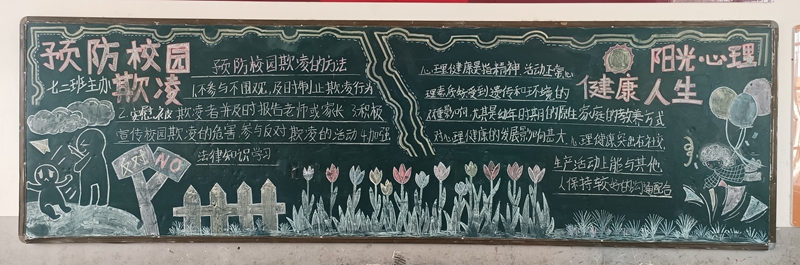 预防校园
欺凌
七二班主办
预防校园欺凌的方法
1.不参与不围观,及时制止欺凌行为
2.安慰被欺凌者并及时报告老师或家长 3.积极
宣传校园欺凌的危害,参与反对欺凌的活动 4.加强
法律知识学习
反对
NO
阳光心理
健康人生
心理健康是指精神、活动正常心
理素质好受到遗传和环境的
双重影响,尤其是幼年时期的原生家庭的教养方式
对心理健康的发展影响甚大,心理健康突出在社交、
生产活动上能与其他
人保持较好的沟通配合